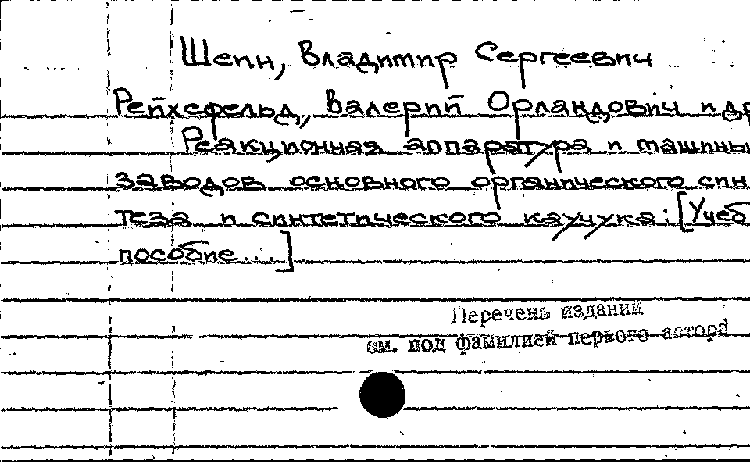 Шеин, Владимир Сергеевич
Рейхсфельд, Валерий Орландович и др
Реакционная аппаратура и машины
заводов основного органического син
теза и синтетического каучука: [Учеб
пособие...]
Перечень изданий
см. под фамилией первого автора